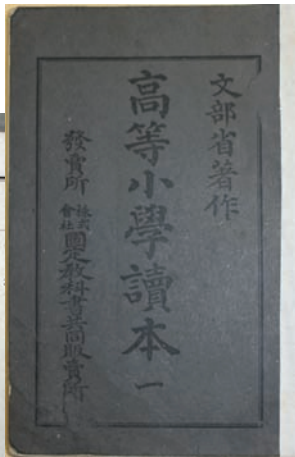 文部省著作
高等小學讀本 一
發賣所 株式會社 國定教科書共同販賣所